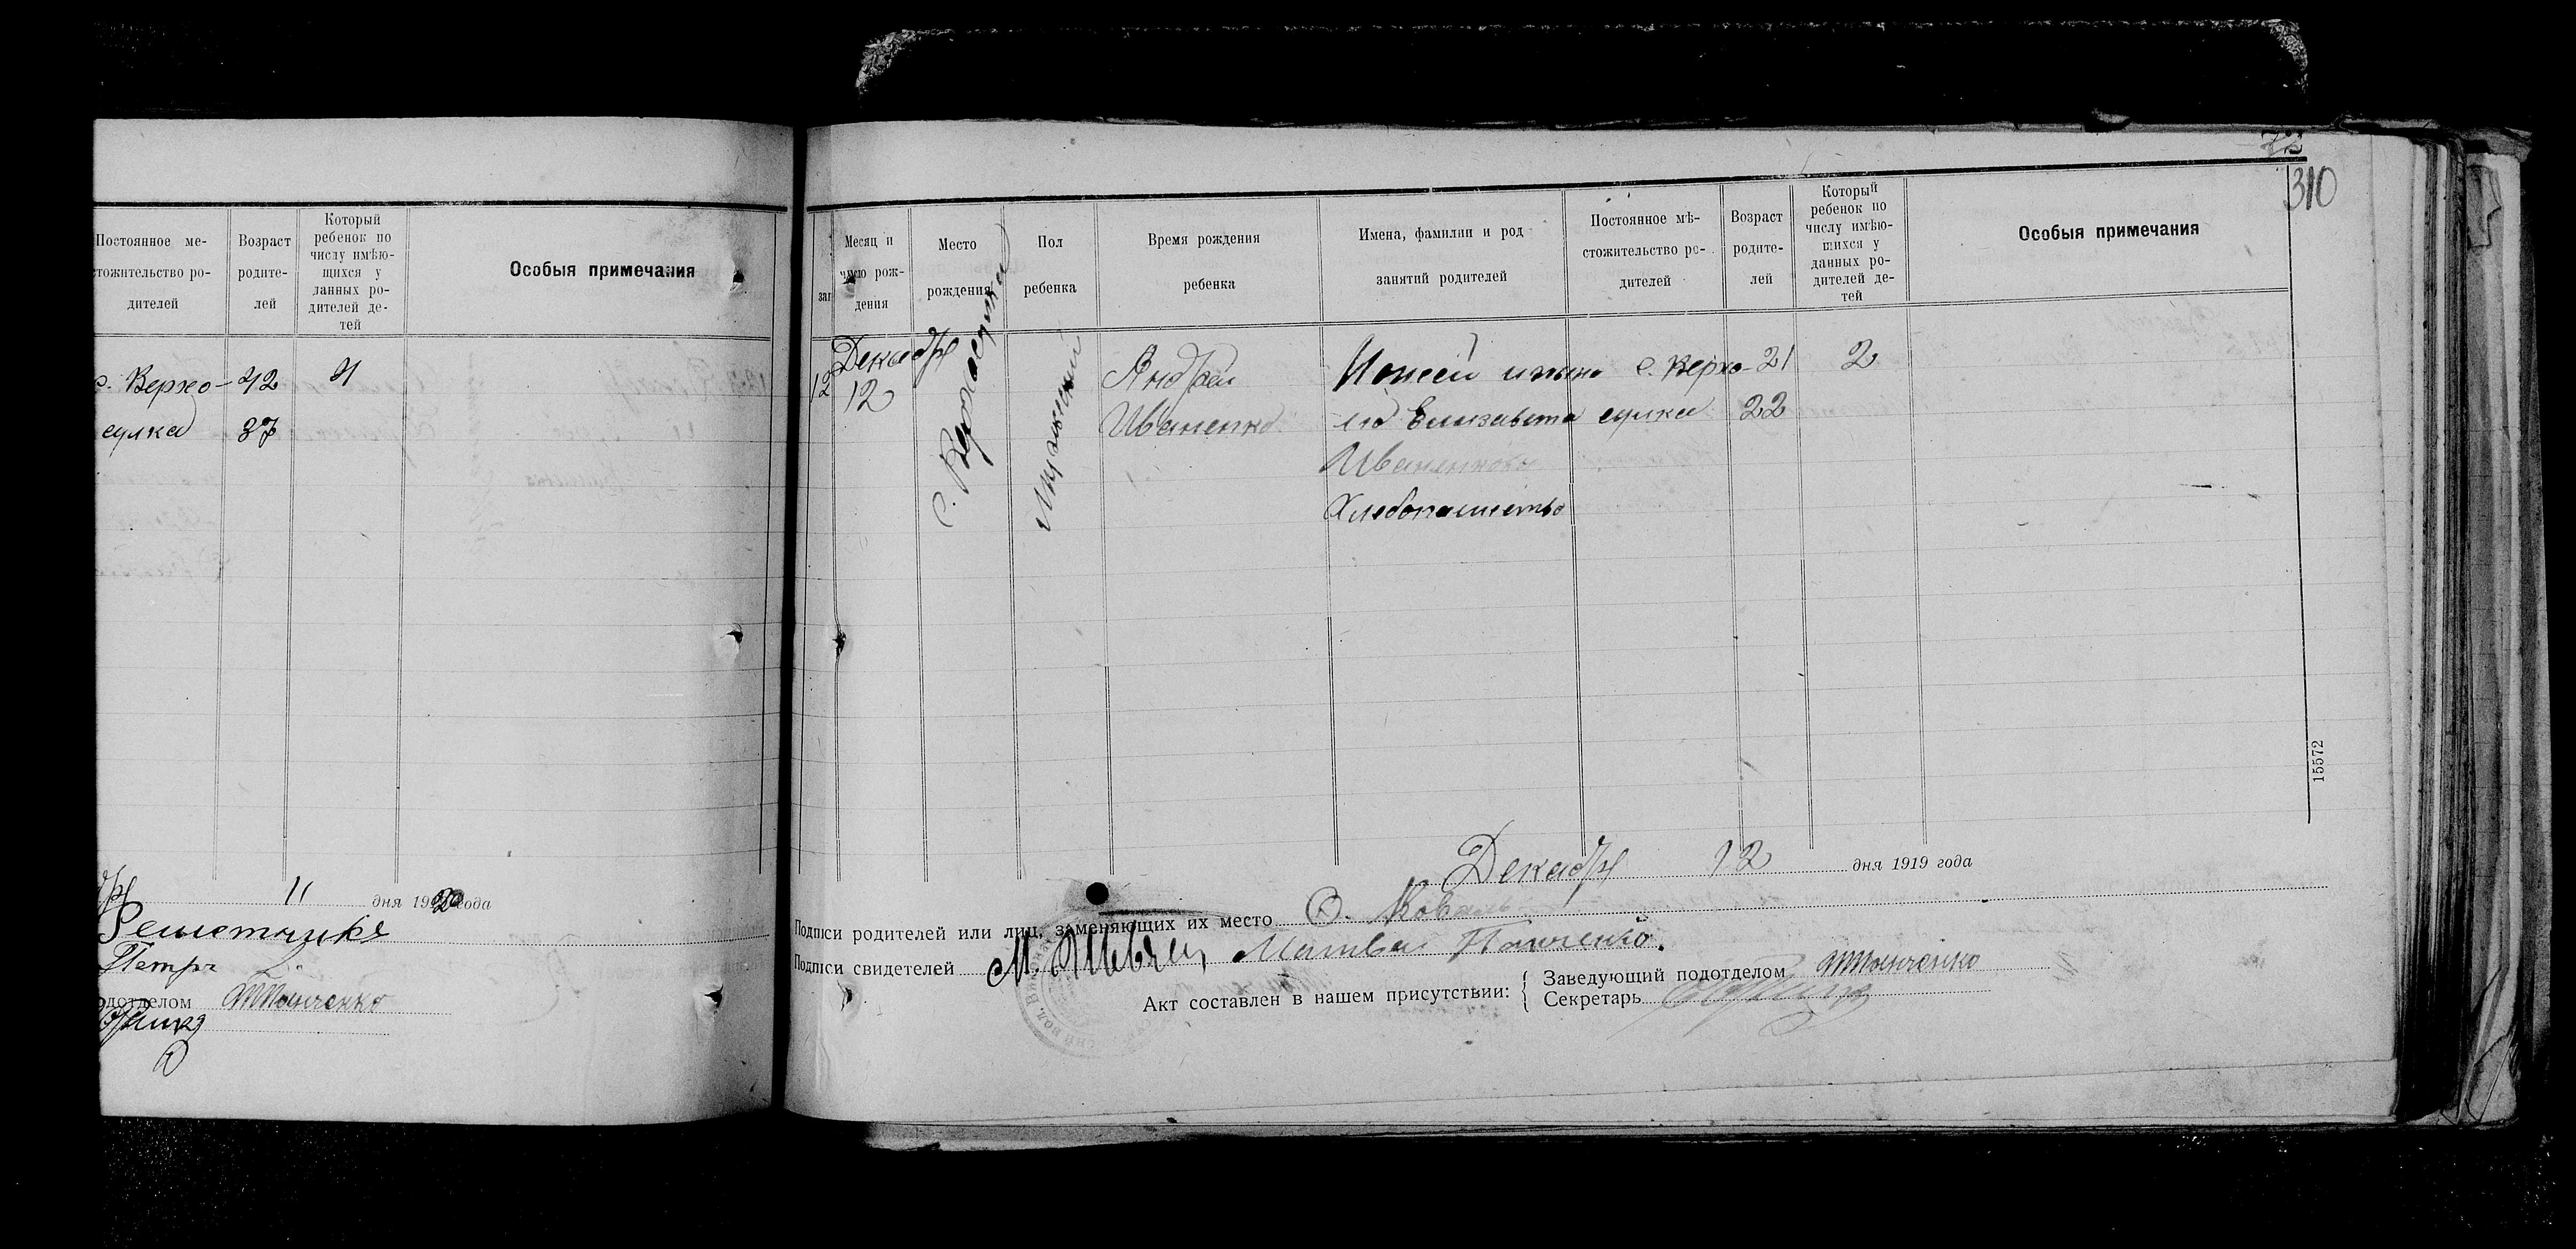 Постоянное ме-
стожительство ро-
дителей
Возраст
родите-
лей
Который
ребенок по
числу имѣю-
щихся у
данных ро-
дителей де-
тей
Особыя примечания
с. Верхо- 42
сулка 37
11 дня 1920 года
Решетника
Петр
подотделом Панченко
72
310
Месяц и
число рож-
дения
Место
рождения
Пол
ребенка
Время рождения
ребенка
Имена, фамилии и род
занятий родителей
Постоянное мѣ-
стожительство ро-
дителей
Возраст
родите-
лей
Который
ребенок по
числу имѣю-
щихся у
данных ро-
дителей де-
тей
Особыя примечания
зап
12
Декабр
12
с. Верхосулка
Мужеский
Андрей
Иваненко
Елизавета
Иваненковы
Хлебопашество
с. Верхо-
сулка
21
22
2
15572
Декабр 12 дня 1919 года
Подписи родителей или лиц, заменяющих их место О. Коваль
Подписи свидетелей М. Швец, Матвей Панченко.
Акт составлен в нашем присутствии:
Заведующий подотделом Панченко
Секретарь